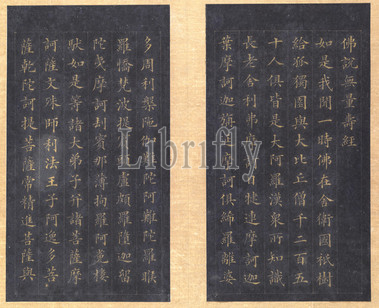 佛說無量壽經
如是我聞一時佛在舍衛國祇樹
給孤獨園與大比丘僧千二百五
十人俱皆是大阿羅漢眾所知識
長老舍利弗摩訶目揵連摩訶迦
葉摩訶迦旃延摩訶俱絺羅離婆
多周利槃陀伽難陀阿難陀羅睺
羅憍梵波提賓頭盧頗羅墮迦留
陀夷摩訶劫賓那薄拘羅阿㝹樓
馱如是等諸大弟子并諸菩薩摩
訶薩文殊師利法王子阿逸多菩
薩乾陀訶提菩薩常精進菩薩與
Librifly